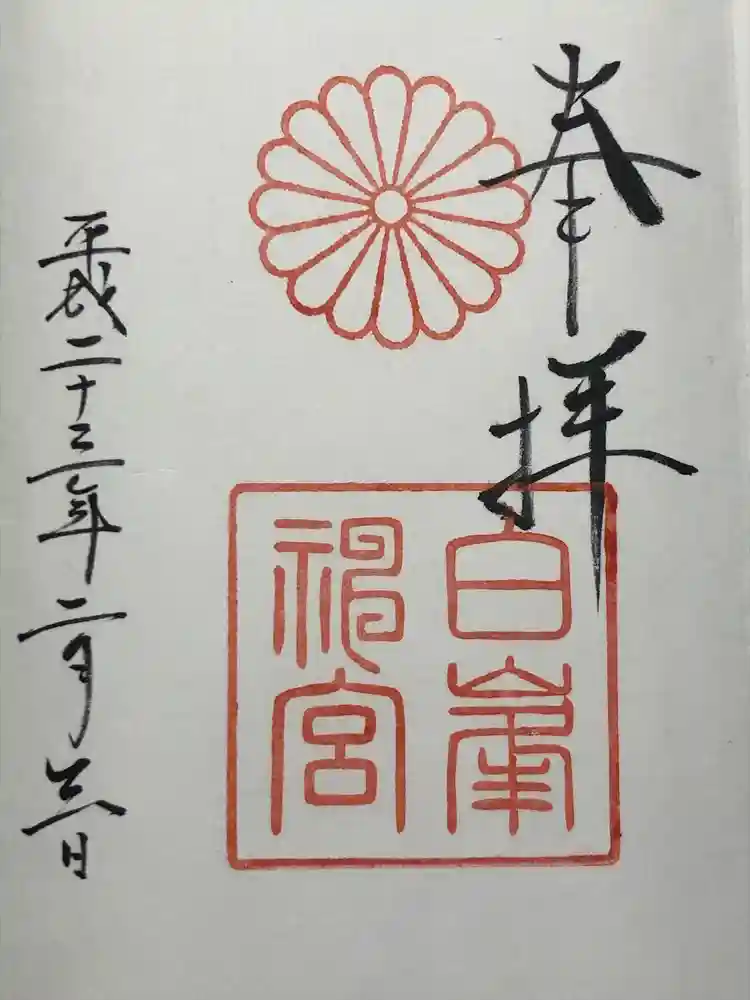 奉拝
白峯
神宮
平成二十三年二月六日